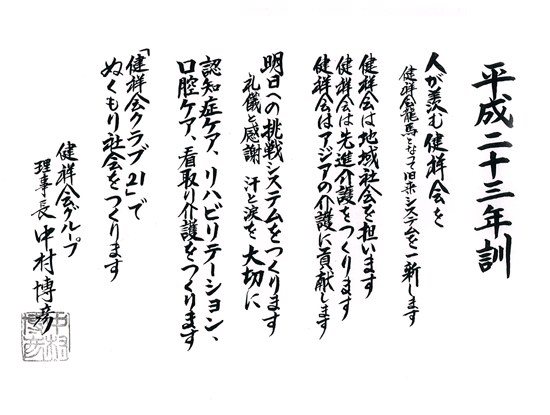 平成二十三年訓
人が羨む健祥会を
健祥会龍馬となって旧来システムを一新します
健祥会は地域社会を担います
健祥会は先進介護をつくります
健祥会はアジアの介護に貢献します
明日への挑戦システムをつくります
礼儀と感謝 汗と涙を大切に
認知症ケア、リハビリテーション、
口腔ケア、看取り介護をつくります
「健祥会クラブ21」で
ぬくもり社会をつくります
健祥会グループ
理事長 中村博彦